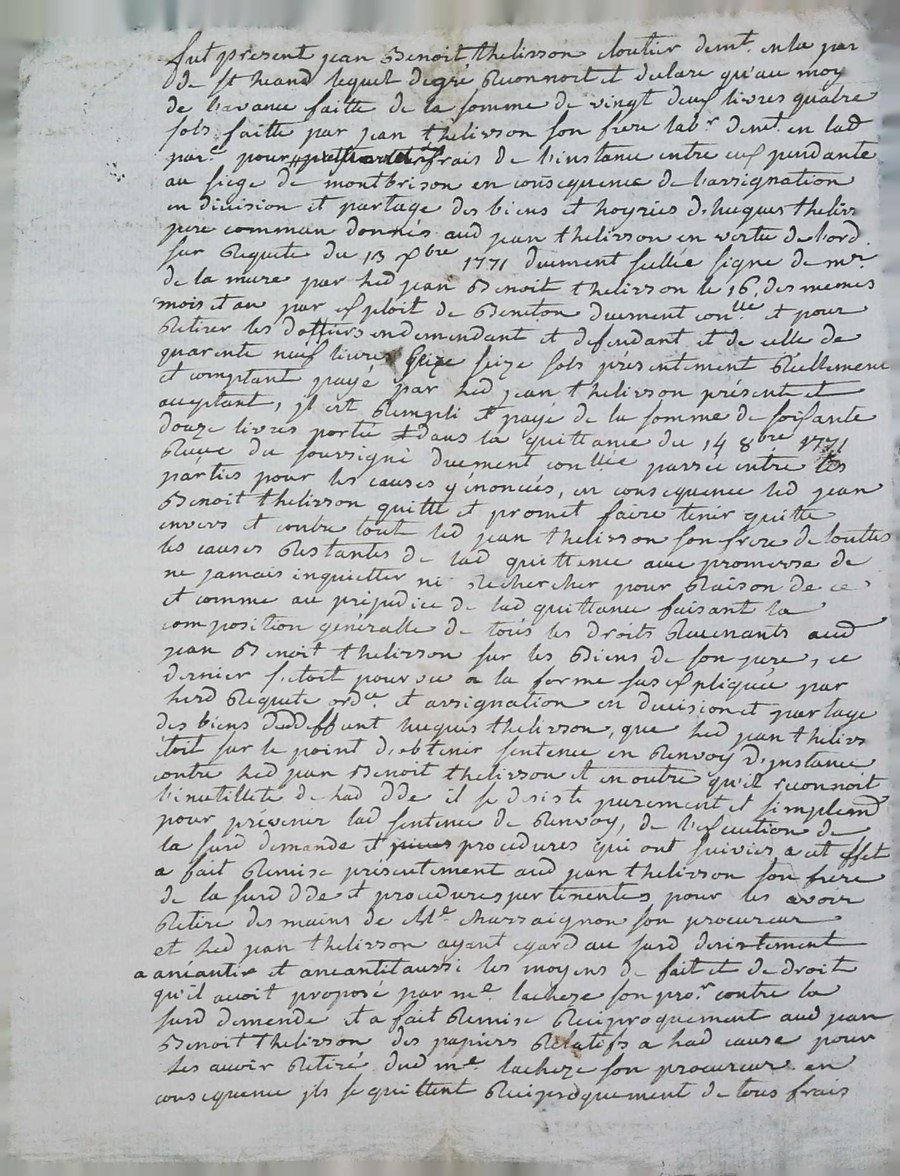 fut présent jean Benoit thelisson cloutier demt. en la par
de st heand lequel de gré Reconnoit et declare qu'au moy
de l'avance faitte de la somme de vingt deux livres quatre
sols faitte par jean thelisson son frere labr. demt. en lad
parce. pour frais de l'instance entre eux pendante
au siege de montbrison en consequence de l'assignation
en division et partage des biens et hoyries d'hugues theliss
pere commun donnés aud jean thelisson en vertu de l'ord.
sur Requete du 13 xbre 1771 duement sellée signe de mr.
de la mure par led jean Benoit thelisson le 16 des memes
mois et an par exploit de Beneton duement conllé et pour
Retirer les dossiers en demendant et defendant et de celle de
quarente neuf livres seize sols présentement Réellement
et comptant payé par led jean thelisson présent et
acceptant, jl est Rempli et payé de la somme de soixante
douze livres porté dans la quittance du 14 8bre 1771
Reçue du soussigné duement conllée passée entre les
parties pour les causes y énoncées, en consequence led jean
Benoit thelisson quitte et promet faire tenir quitte
envers et contre tout led jean thelisson son frere de touttes
les causes Restantes de lad quittence avec promesse de
ne jamais inquietter ni Rechercher pour Raison de ce
et comme au préjudice de lad quittance faisant la
composition généralle de tous les droits Revenants aud
jean Benoit thelisson sur les Biens de son pere, ce
dernier s'etoit pourvu a la forme sus expliquée par
lesd Requete ordce. et assignation en division et partage
des biens dud deffunt hugues thelisson, que led jean theliss
étoit sur le point d'obtenir sentence en Renvoy d'jnstance
contre led jean Benoit thelisson et en outre qu'il reconnoit
l'inutillité de lad dde il se desiste purement et simplemt
pour prevenir lad sentence de Renvoy, de l'execution de
la susd demande et procedures qui ont suivies a cet effet
a fait Remise présentement aud jean thelisson son frere
de la susd dde et procedures pertinentes pour les avoir
Retiré des mains de Me. Chassaignon son procureur
et led jean thelisson ayant egard au susd desistement
a anéantir et aneantit aussi les moyens de fait et de droit
qu'il avoit proposé par me. lacheze son pror. contre la
susd demende et a fait Remise Reciproquement aud jean
Benoit thelisson des papiers Relatifs a lad cause pour
les avoir Retiré dud me. lacheze son procureur en
consequence jls se quittent Reciproquement de tous frais